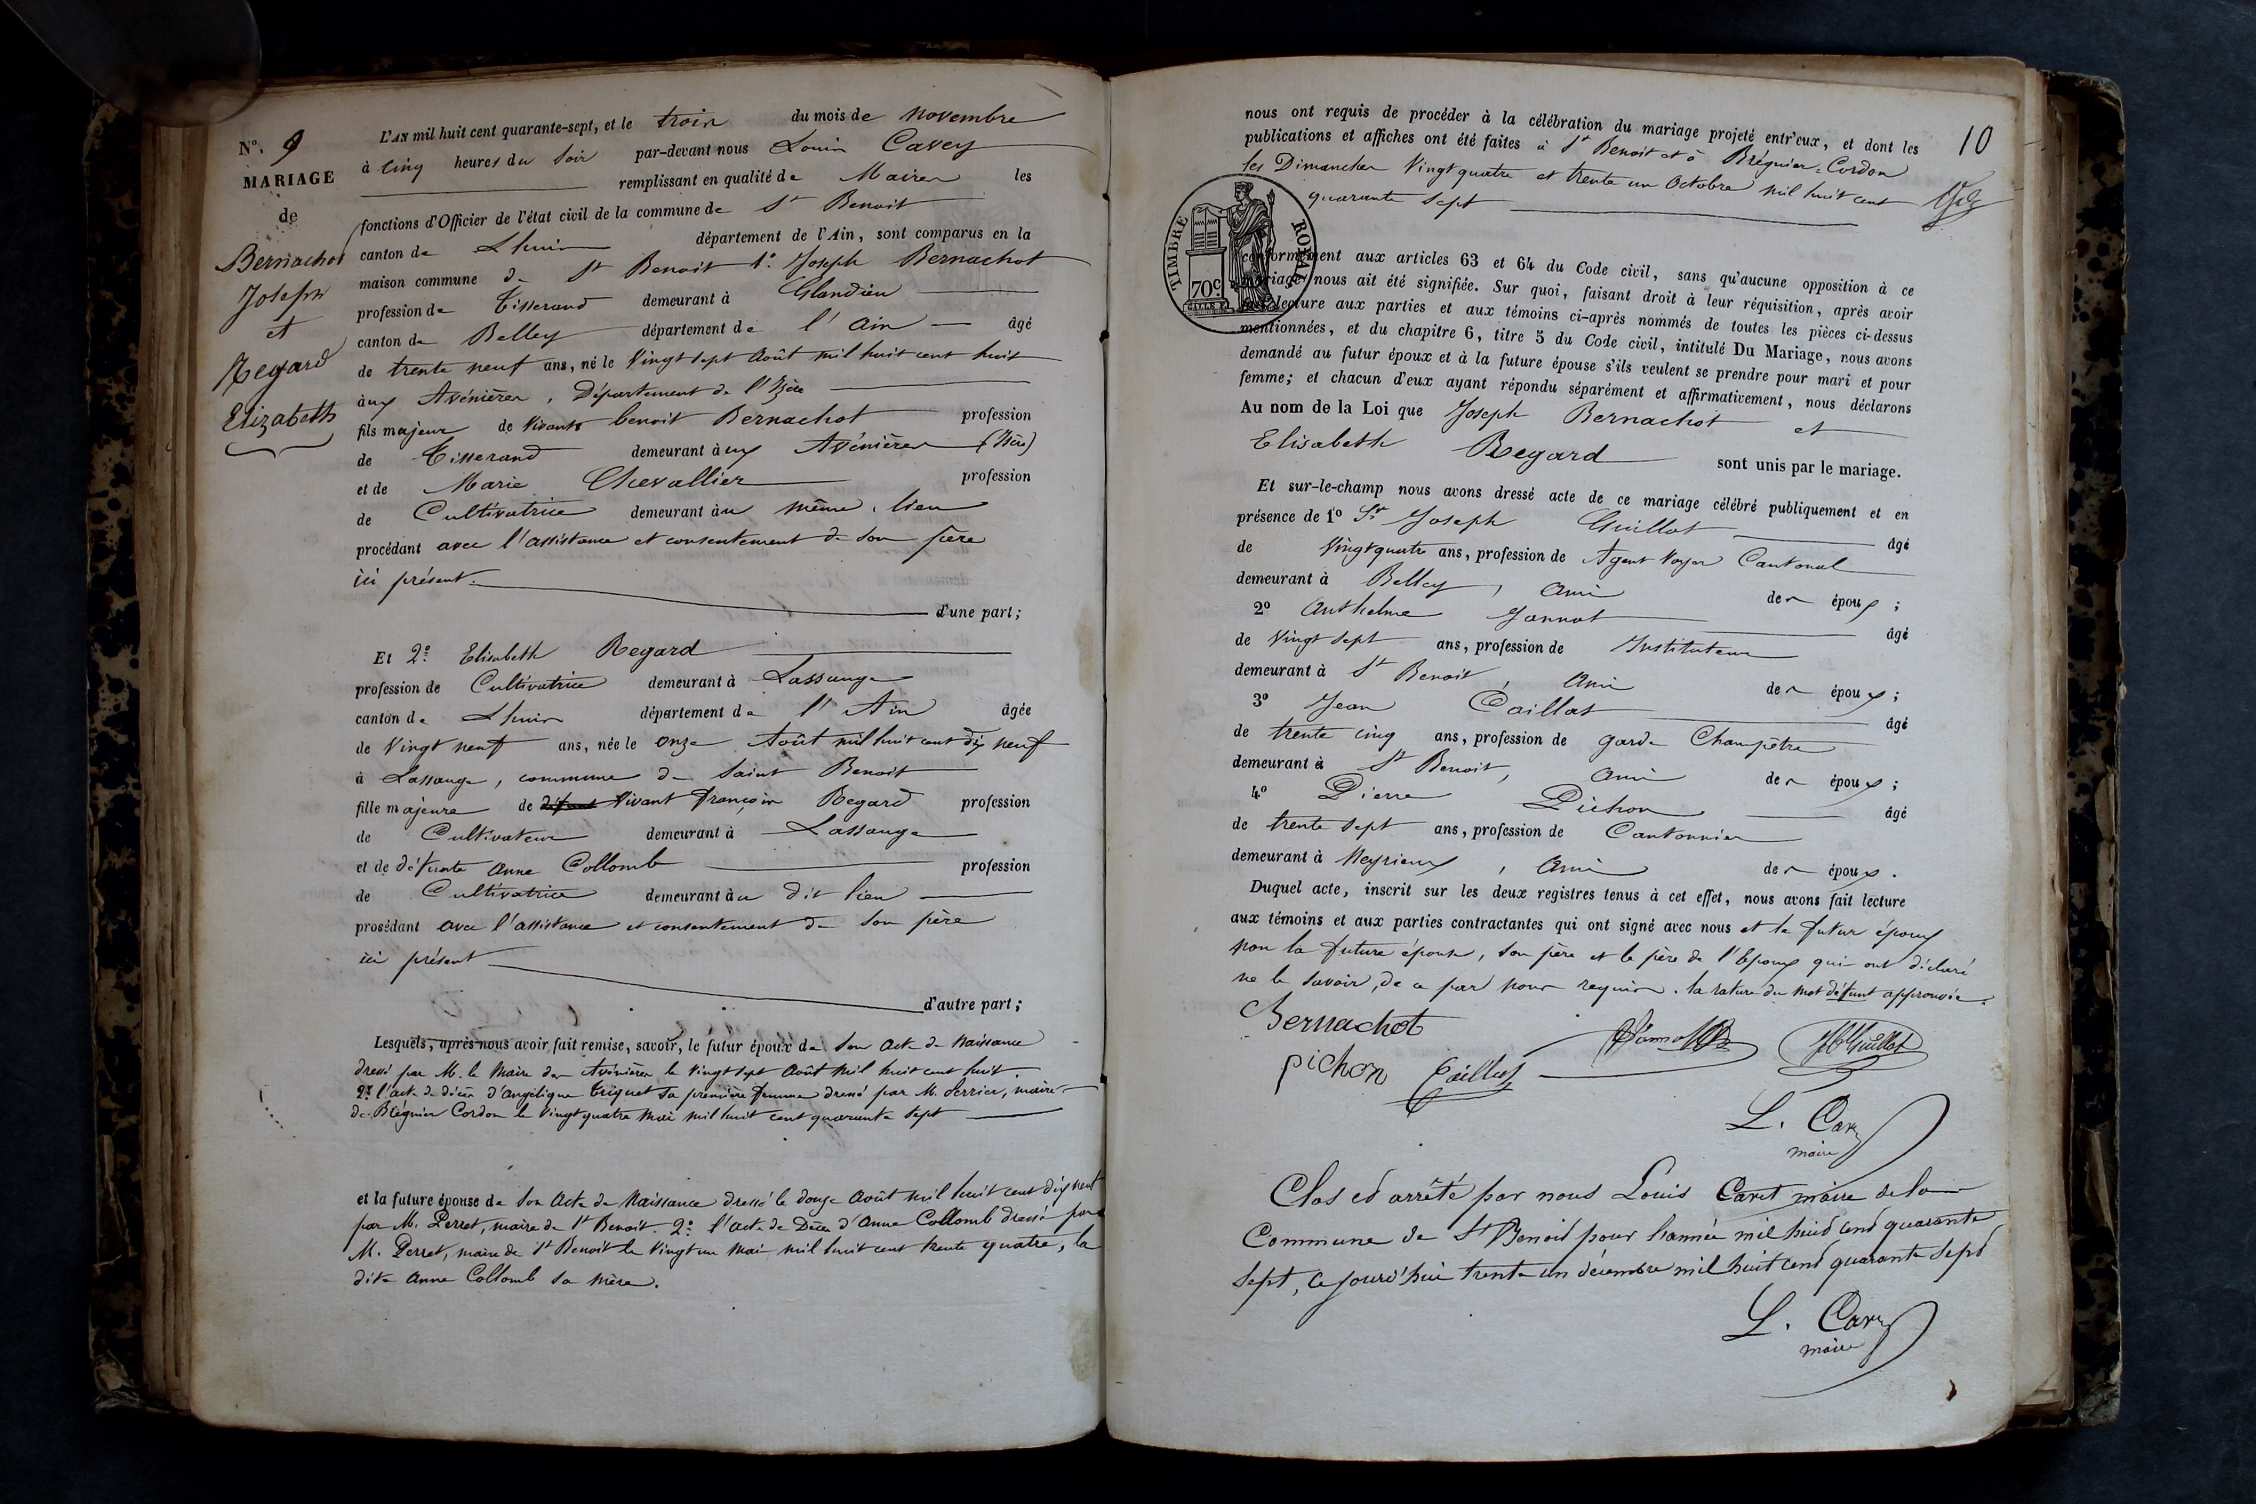 N°. 9
MARIAGE
de
Bernachot
Joseph
et
Regard
Elizabeth
L'AN mil huit cent quarante-sept, et le trois du mois de novembre
à cinq heures du soir par-devant nous Louis Cavey
remplissant en qualité de Maire les
fonctions d'Officier de l'état civil de la commune de St Benoit
canton de Lhuis département de l'Ain, sont comparus en la
maison commune de St Benoit 1° Joseph Bernachot
profession de Tisserand demeurant à Glandieu
canton de Belley département de l'ain âgé
de trente neuf ans, né le Vingt sept Août mil huit cent huit
aux Avénières, Département de l'Isère
fils majeur de Vivants benoit Bernachot profession
de Tisserand demeurant aux Avénières (Isère)
et de Marie Chevallier profession
de Cultivatrice demeurant au même lieu
procédant avec l'assistance et consentement de son père
ici présent.
d'une part;
Et 2° Elisabeth Regard
profession de Cultivatrice demeurant à Lassange
canton de Lhuis département de l'Ain âgée
de Vingt neuf ans, née le onze Août mil huit cent dix neuf
à Lassange, commune de Saint Benoit
fille majeure de défunt Vivant françois Regard profession
de Cultivateur demeurant à Lassange
et de défunte anne Collomb profession
de Cultivatrice demeurant au dit lieu
procédant avec l'assistance et consentement de son père
ici présent
d'autre part;
Lesquels, après nous avoir fait remise, savoir, le futur époux de son acte de Naissance
dressé par M. le Maire des Avénières le Vingt sept Août mil huit cent huit.
2° l'acte de décès d'Angélique Triquet sa première femme dressé par M. Perrier, maire
de Brégnier Cordon le Vingt quatre Mai mil huit cent quarante sept
et la future épouse de son Acte de Naissance dressé le douze Août mil huit cent dix neuf
par M. Perret, maire de St Benoit. 2° l'acte de Décès d'Anne Collomb dressé par
M. Perret, maire de St Benoit le Vingt un Mai mil huit cent trente quatre, la
dite Anne Collomb sa mère.
10
nous ont requis de procéder à la célébration du mariage projeté entr'eux, et dont les
publications et affiches ont été faites à St Benoit et à Brégnier-Cordon
les Dimanches Vingt quatre et trente un Octobre mil huit cent
quarante sept
TIMBRE ROYAL
70c.
conformément aux articles 63 et 64 du Code civil, sans qu'aucune opposition à ce
mariage nous ait été signifiée. Sur quoi, faisant droit à leur réquisition, après avoir
fait lecture aux parties et aux témoins ci-après nommés de toutes les pièces ci-dessus
mentionnées, et du chapitre 6, titre 5 du Code civil, intitulé Du Mariage, nous avons
demandé au futur époux et à la future épouse s'ils veulent se prendre pour mari et pour
femme; et chacun d'eux ayant répondu séparément et affirmativement, nous déclarons
Au nom de la Loi que Joseph Bernachot et
Elisabeth Regard sont unis par le mariage.
Et sur-le-champ nous avons dressé acte de ce mariage célébré publiquement et en
présence de 1° Sr Joseph Guillot âgé
de Vingt quatre ans, profession de Agent Voyer Cantonal
demeurant à Belley, Ami des époux;
2° Anthelme Jannot âgé
de Vingt sept ans, profession de Instituteur
demeurant à St Benoit, Ami des époux;
3° Jean Caillat âgé
de trente cinq ans, profession de garde Champêtre
demeurant à St Benoit, Ami des époux;
4° Pierre Pichon âgé
de trente sept ans, profession de Cantonnier
demeurant à Meyrieux, Ami des époux.
Duquel acte, inscrit sur les deux registres tenus à cet effet, nous avons fait lecture
aux témoins et aux parties contractantes qui ont signé avec nous et le futur époux
non la future épouse, son père et le père de l'époux qui ont déclaré
ne le savoir, de ce par nous requis. la rature du mot défunt approuvée.
Bernachot
Jannot
Guillot
pichon
Caillat
L. Cavey
maire
Clos et arrêté par nous Louis Cavet maire de la
Commune de St Benoit pour l'année mil huit cent quarante
sept, ce jourd'hui trente un décembre mil huit cent quarante sept
L. Cavey
maire